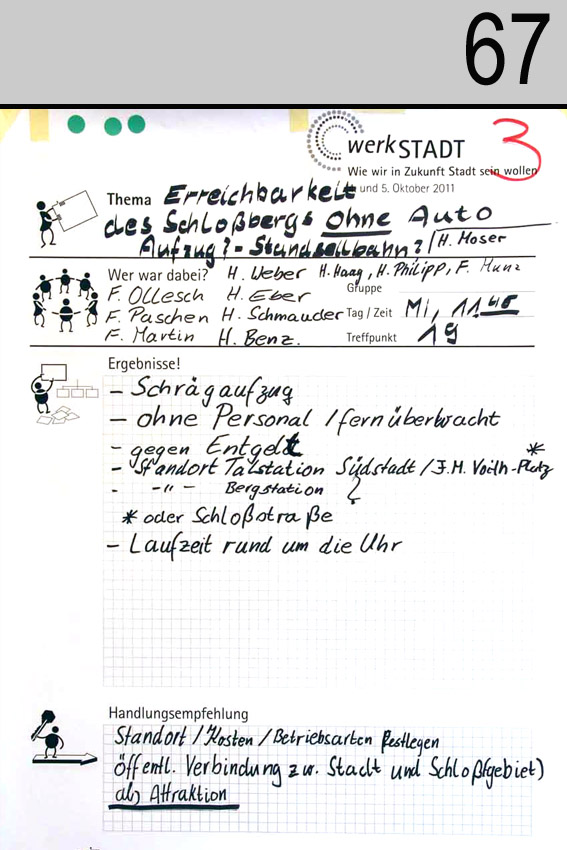 67
3
werkSTADT
Wie wir in Zukunft Stadt sein wollen
und 5. Oktober 2011
Thema Erreichbarkeit
des Schloßbergs ohne Auto
Aufzug? - Standseilbahn? / H. Moser
Wer war dabei? H. Weber H. Haag, H. Philipp, F. Munz
Gruppe
F. Ollesch H. Eber
F. Paschen H. Schmauder Tag / Zeit Mi, 11.45
F. Martin H. Benz. Treffpunkt 19
Ergebnisse!
- Schrägaufzug
- ohne Personal / fernüberwacht
- gegen Entgelt
- Standort Talstation Südstadt / J.M. Voith-Platz *
- -"- Bergstation ?
* oder Schloßstraße
- Laufzeit rund um die Uhr
Handlungsempfehlung
Standort / Kosten / Betriebsarten festlegen
öffentl. Verbindung zw. Stadt und Schloß(gebiet)
als Attraktion